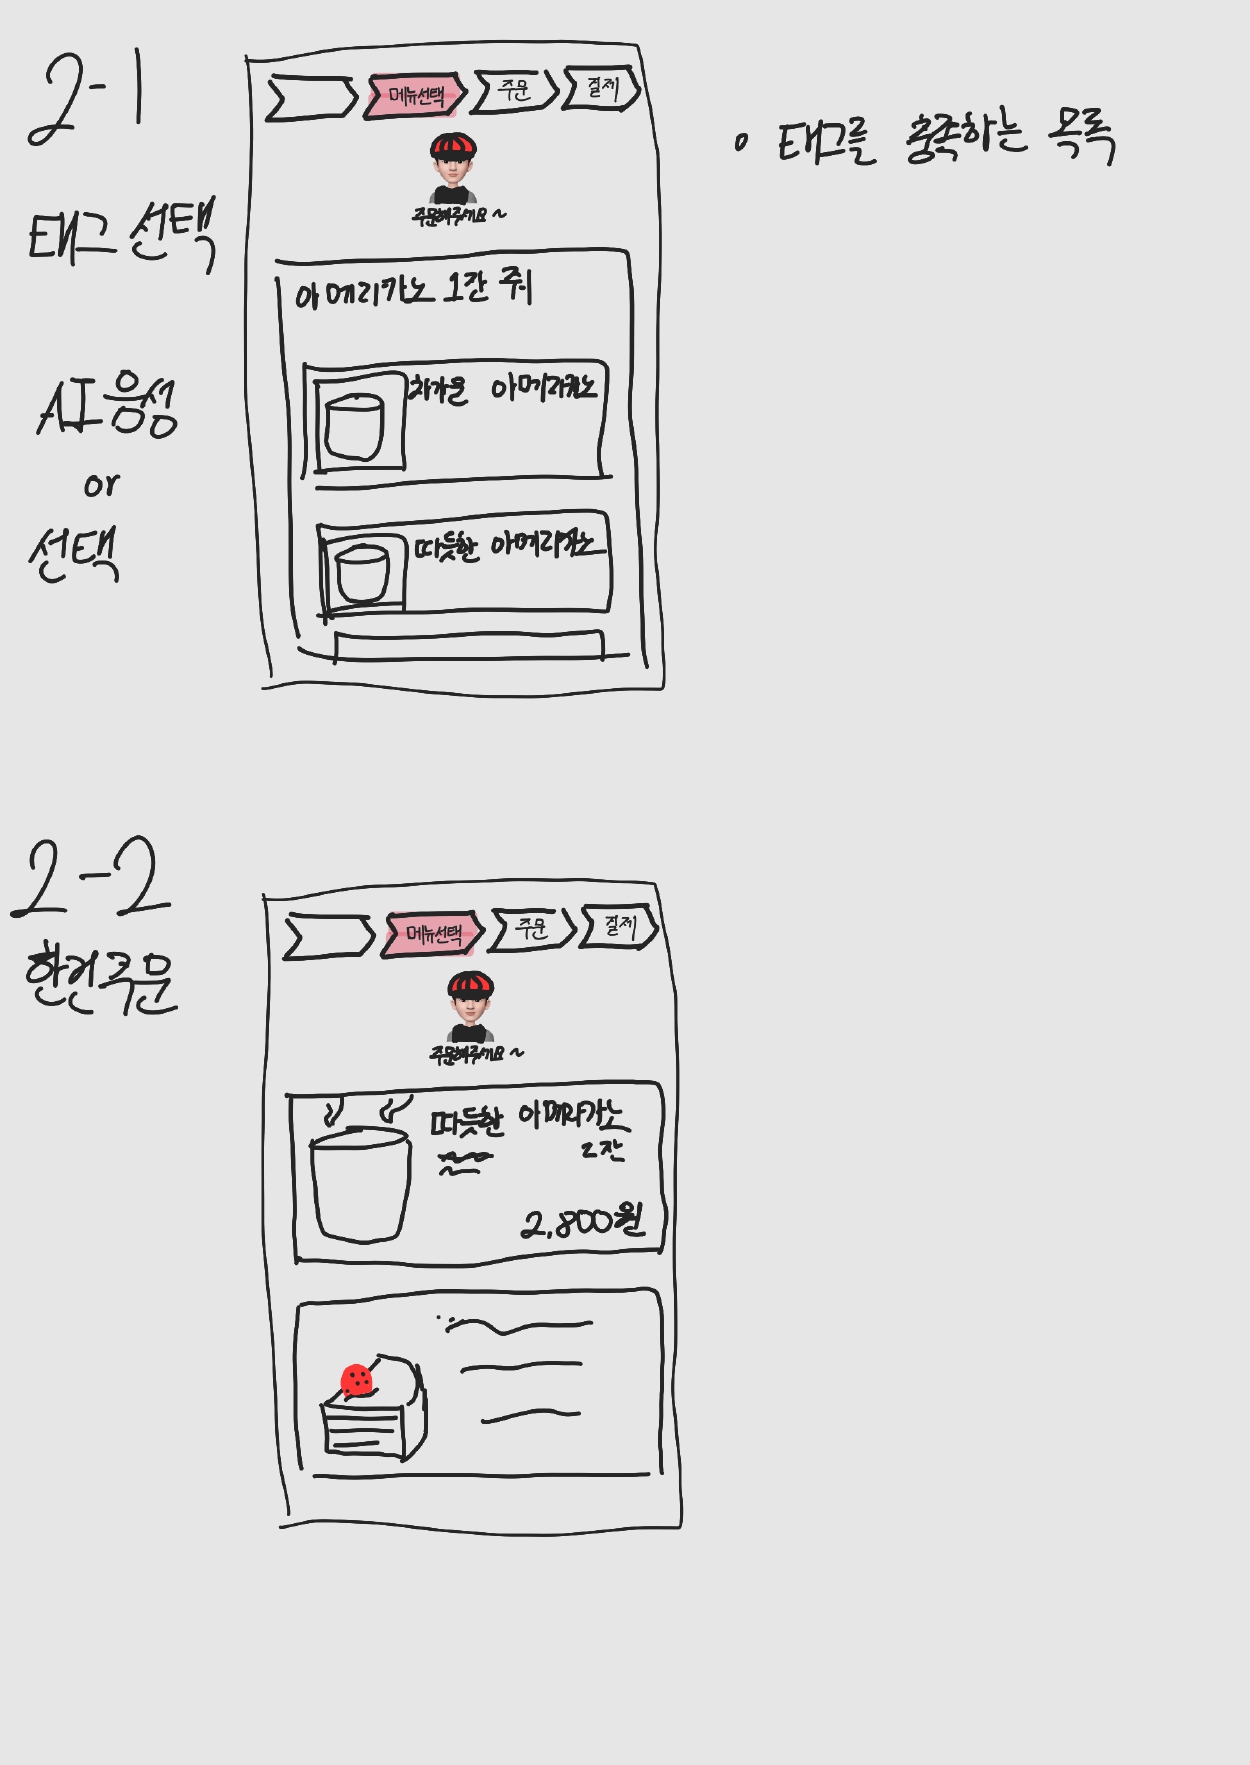 2-1
태그 선택
AI 음성
or
선택
메뉴선택
주문
결제
주문해주세요~
아메리카노 1잔 줘
차가운 아메리카노
따듯한 아메리카노
• 태그를 충족하는 목록
2-2
주문
메뉴선택
주문
결제
주문해주세요~
따듯한 아메리카노
2잔
2,800원